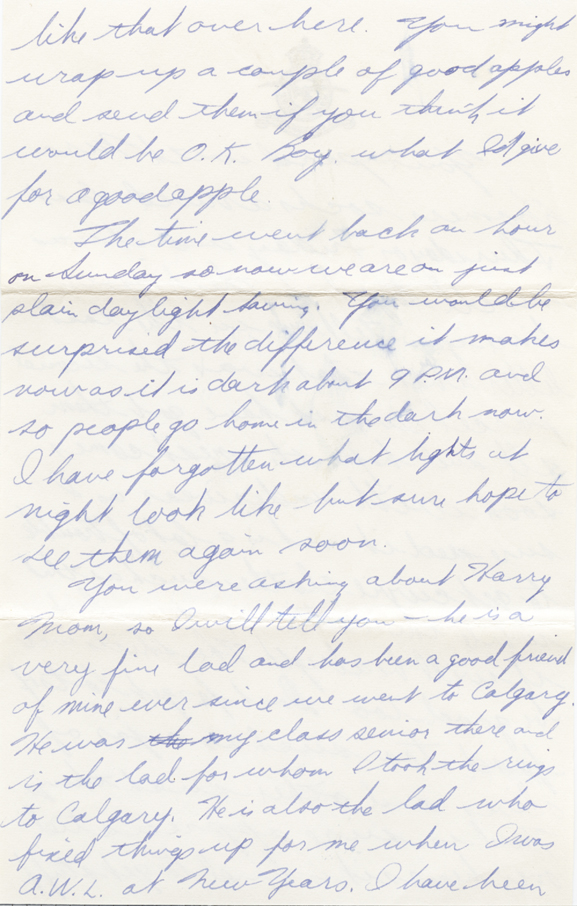 like that over here. You might
wrap up a couple of good apples
and send them if you think it
would be O.K. Boy what I'd give
for a good apple.
The time went back an hour
on Sunday so now we are on just
plain daylight saving. You would be
surprised the difference it makes
now as it is dark about 9 P.M. and
so people go home in the dark now.
I have forgotten what lights at
night look like but sure hope to
see them again soon.
You were asking about Harry
Mom, so I will tell you - he is a
very fine lad and has been a good friend
of mine ever since we went to Calgary.
He was the my class senior there and
is the lad for whom I took the rings
to Calgary. He is also the lad who
fixed things up for me when I was
A.W.L. at New Years. I have been